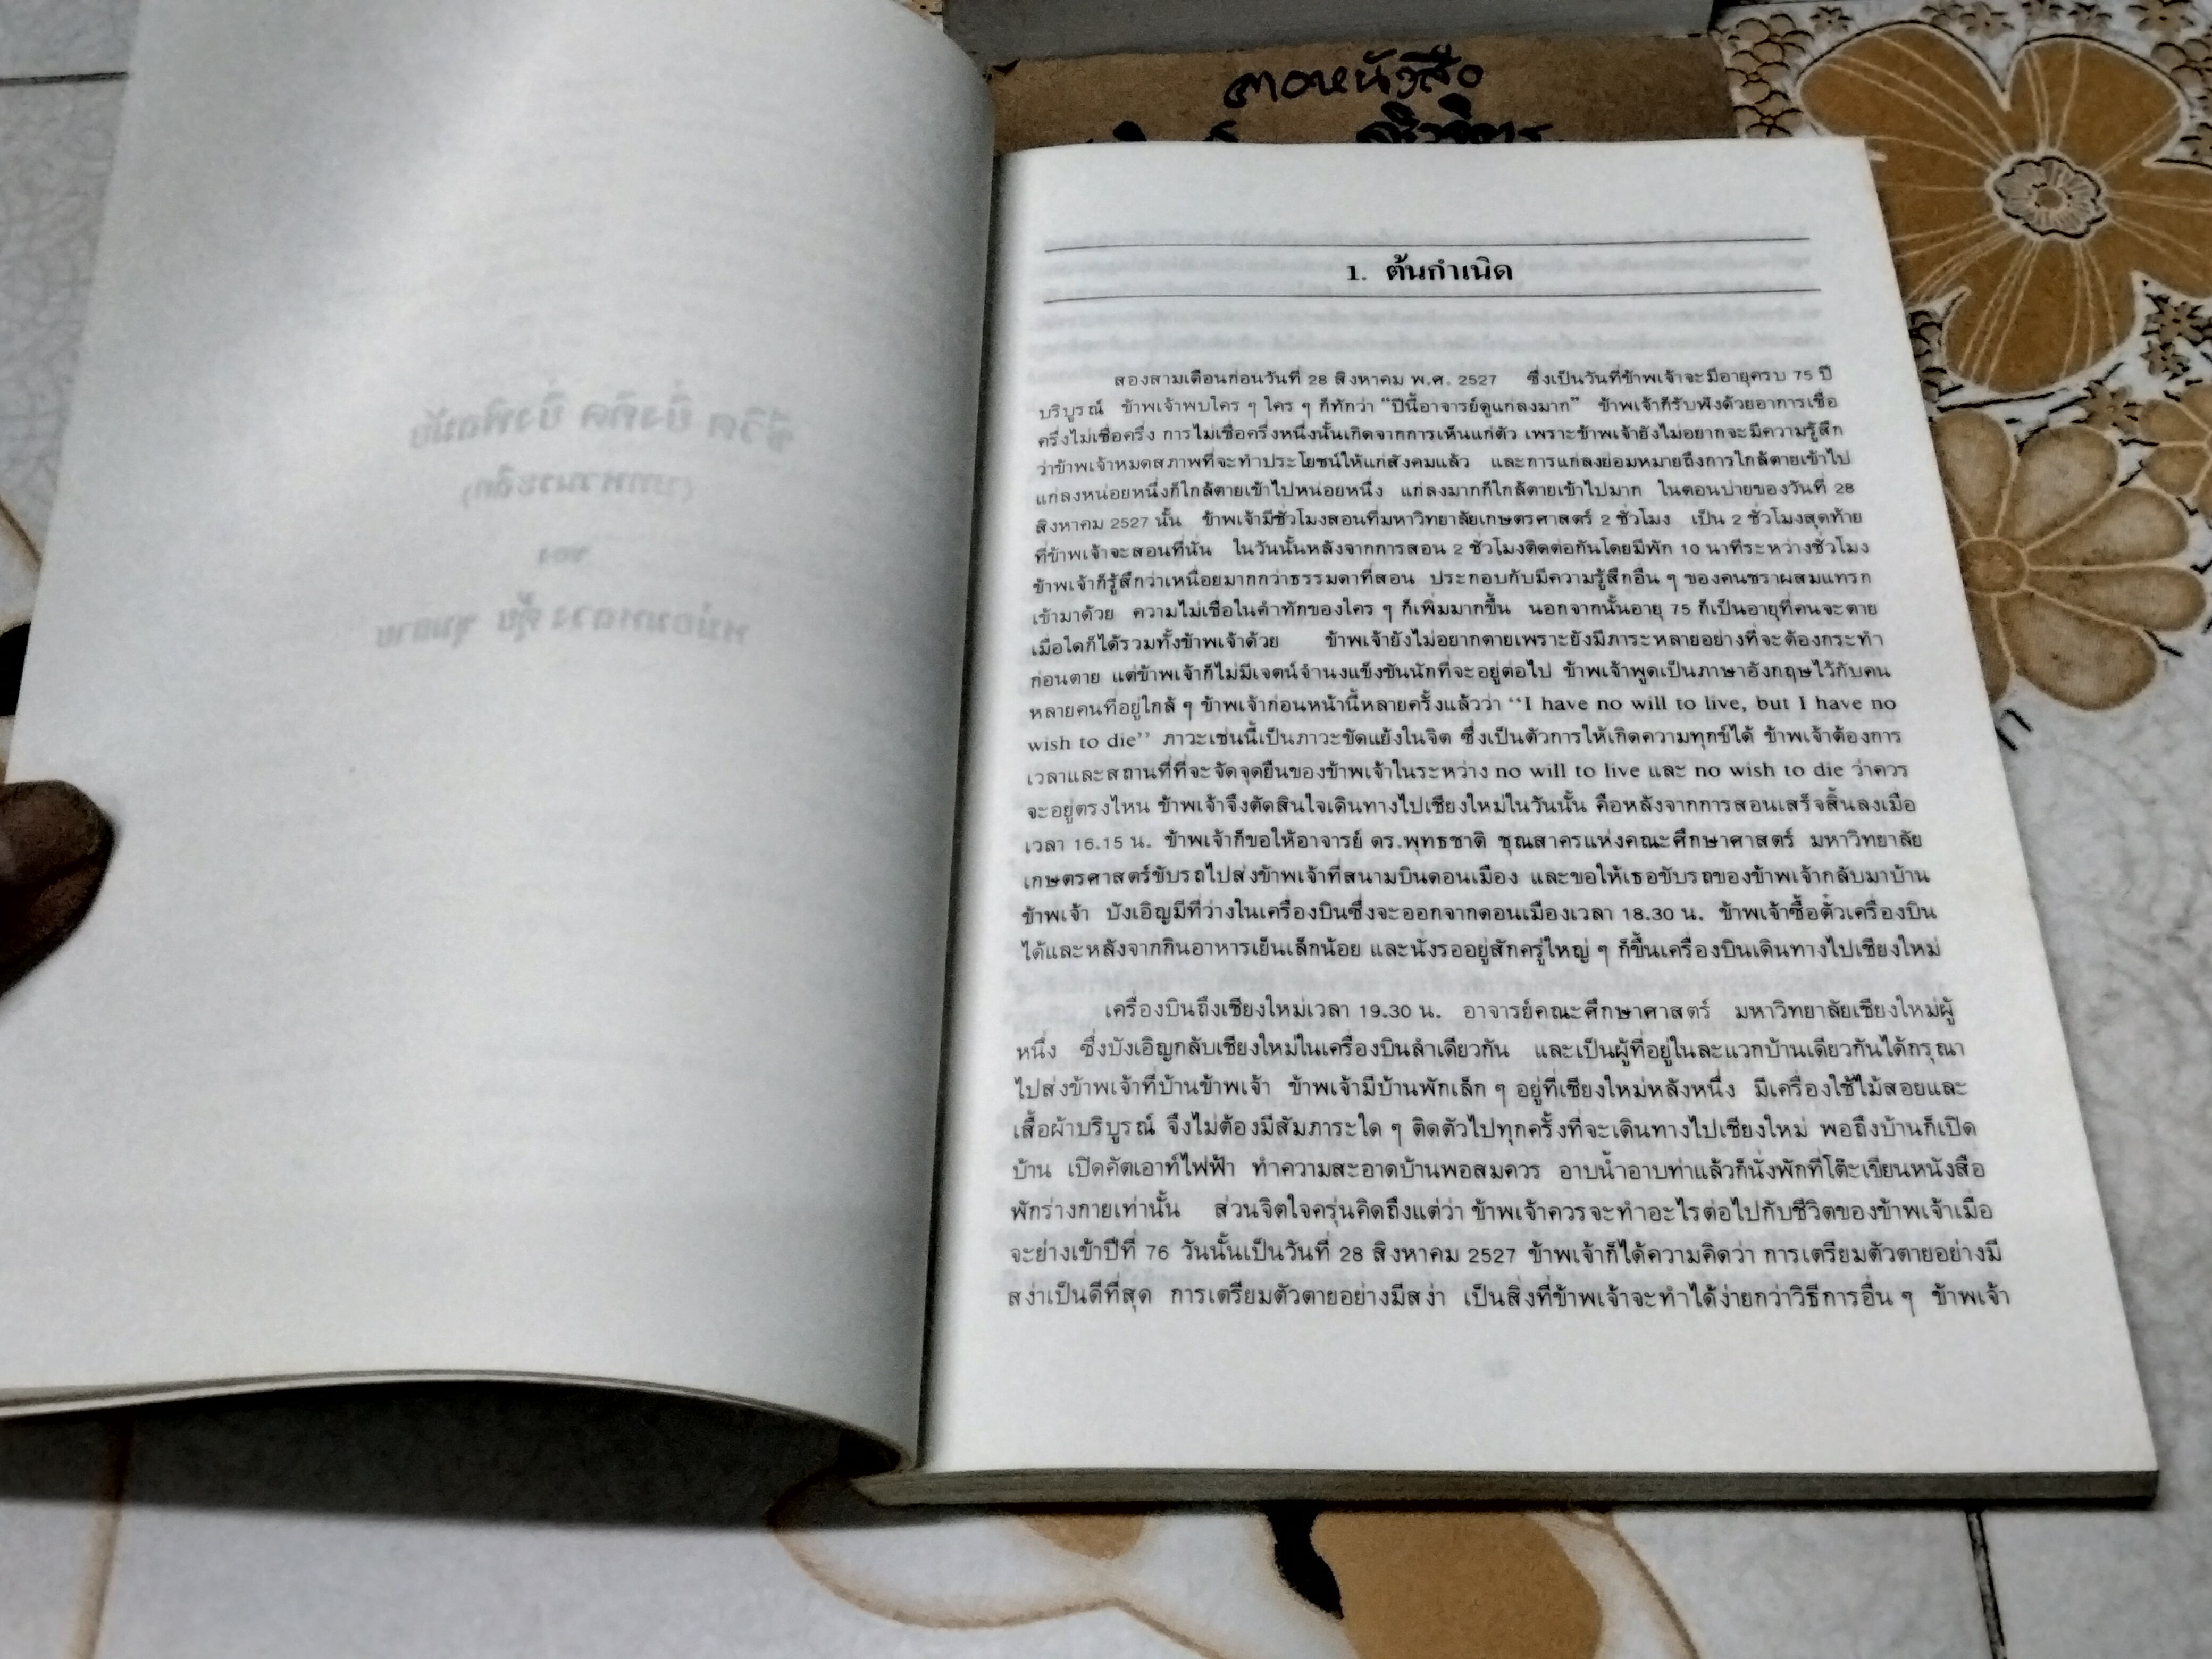 ลาดหนังสือ
1. ต้นกำเนิด
สองสามเดือนก่อนวันที่ 28 สิงหาคม พ.ศ. 2527 ซึ่งเป็นวันที่ข้าพเจ้าจะมีอายุครบ 75 ปี
บริบูรณ์ ข้าพเจ้าพบใคร ๆ ใคร ๆ ก็ทักว่า "ปีนี้อาจารย์ดูแก่ลงมาก" ข้าพเจ้าก็รับฟังด้วยอาการเชื่อ
ครึ่งไม่เชื่อครึ่ง การไม่เชื่อครึ่งหนึ่งนั้นเกิดจากการเห็นแก่ตัว เพราะข้าพเจ้ายังไม่อยากจะมีความรู้สึก
ว่าข้าพเจ้าหมดสภาพที่จะทำประโยชน์ให้แก่สังคมแล้ว และการแก่ลงย่อมหมายถึงการใกล้ตายเข้าไป
แก่ลงหน่อยหนึ่งก็ใกล้ตายเข้าไปหน่อยหนึ่ง แก่ลงมากก็ใกล้ตายเข้าไปมาก ในตอนบ่ายของวันที่ 28
สิงหาคม 2527 นั้น ข้าพเจ้ามีชั่วโมงสอนที่มหาวิทยาลัยเกษตรศาสตร์ 2 ชั่วโมง เป็น 2 ชั่วโมงสุดท้าย
ที่ข้าพเจ้าจะสอนที่นั่น ในวันนั้นหลังจากการสอน 2 ชั่วโมงติดต่อกันโดยมีพัก 10 นาทีระหว่างชั่วโมง
ข้าพเจ้าก็รู้สึกว่าเหนื่อยมากกว่าธรรมดาที่สอน ประกอบกับมีความรู้สึกอื่น ๆ ของคนชราผสมแทรก
เข้ามาด้วย ความไม่เชื่อในคำทักของใคร ๆ ก็เพิ่มมากขึ้น นอกจากนั้นอายุ 75 ก็เป็นอายุที่คนจะตาย
เมื่อใดก็ได้รวมทั้งข้าพเจ้าด้วย ข้าพเจ้ายังไม่อยากตายเพราะยังมีภาระหลายอย่างที่จะต้องกระทำ
ก่อนตาย แต่ข้าพเจ้าก็ไม่มีเจตน์จำนงแข็งขันนักที่จะอยู่ต่อไป ข้าพเจ้าพูดเป็นภาษาอังกฤษไว้กับคน
หลายคนที่อยู่ใกล้ ๆ ข้าพเจ้าก่อนหน้านี้หลายครั้งแล้วว่า "I have no will to live, but I have no
wish to die" ภาวะเช่นนี้เป็นภาวะขัดแย้งในจิต ซึ่งเป็นตัวการให้เกิดความทุกข์ได้ ข้าพเจ้าต้องการ
เวลาและสถานที่ที่จะจัดจุดยืนของข้าพเจ้าในระหว่าง no will to live และ no wish to die ว่าควร
จะอยู่ตรงไหน ข้าพเจ้าจึงตัดสินใจเดินทางไปเชียงใหม่ในวันนั้น คือหลังจากการสอนเสร็จสิ้นลงเมื่อ
เวลา 16.15 น. ข้าพเจ้าก็ขอให้อาจารย์ ดร.พุทธชาติ ชุณสาครแห่งคณะศึกษาศาสตร์ มหาวิทยาลัย
เกษตรศาสตร์ขับรถไปส่งข้าพเจ้าที่สนามบินดอนเมือง และขอให้เธอขับรถของข้าพเจ้ากลับมาบ้าน
ข้าพเจ้า บังเอิญมีที่ว่างในเครื่องบินซึ่งจะออกจากดอนเมืองเวลา 18.30 น. ข้าพเจ้าซื้อตั๋วเครื่องบิน
ได้และหลังจากกินอาหารเย็นเล็กน้อย และนั่งรออยู่สักครู่ใหญ่ ๆ ก็ขึ้นเครื่องบินเดินทางไปเชียงใหม่
เครื่องบินถึงเชียงใหม่เวลา 19.30 น. อาจารย์คณะศึกษาศาสตร์ มหาวิทยาลัยเชียงใหม่ผู้
หนึ่ง ซึ่งบังเอิญกลับเชียงใหม่ในเครื่องบินลำเดียวกัน และเป็นผู้ที่อยู่ในละแวกบ้านเดียวกันได้กรุณา
ไปส่งข้าพเจ้าที่บ้านข้าพเจ้า ข้าพเจ้ามีบ้านพักเล็ก ๆ อยู่ที่เชียงใหม่หลังหนึ่ง มีเครื่องใช้ไม้สอยและ
เสื้อผ้าบริบูรณ์ จึงไม่ต้องมีสัมภาระใด ๆ ติดตัวไปทุกครั้งที่จะเดินทางไปเชียงใหม่ พอถึงบ้านก็เปิด
บ้าน เปิดคัตเอาท์ไฟฟ้า ทำความสะอาดบ้านพอสมควร อาบน้ำอาบท่าแล้วก็นั่งพักที่โต๊ะเขียนหนังสือ
พักร่างกายเท่านั้น ส่วนจิตใจครุ่นคิดถึงแต่ว่า ข้าพเจ้าควรจะทำอะไรต่อไปกับชีวิตของข้าพเจ้าเมื่อ
จะย่างเข้าปีที่ 76 วันนั้นเป็นวันที่ 28 สิงหาคม 2527 ข้าพเจ้าก็ได้ความคิดว่า การเตรียมตัวตายอย่างมี
สง่าเป็นดีที่สุด การเตรียมตัวตายอย่างมีสง่า เป็นสิ่งที่ข้าพเจ้าจะทำได้ง่ายกว่าวิธีการอื่น ๆ ข้าพเจ้า